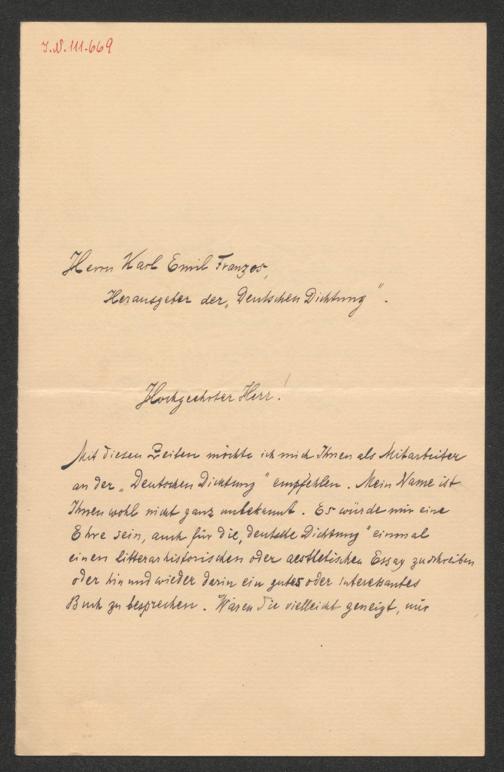 I.N. 111.669
Herrn Karl Emil Franzos,
Herausgeber der „Deutschen Dichtung".
Hochgeehrter Herr!
Mit diesen Zeilen möchte ich mich Ihnen als Mitarbeiter
an der „Deutschen Dichtung" empfehlen. Mein Name ist
Ihnen wohl nicht ganz unbekannt. Es würde mir eine
Ehre sein, auch für die „deutsche Dichtung" einmal
einen litterarhistorischen oder aesthetischen Essay zu schreiben
oder hin und wieder darin ein gutes oder interessantes
Buch zu besprechen. Wären Sie vielleicht geneigt, mir